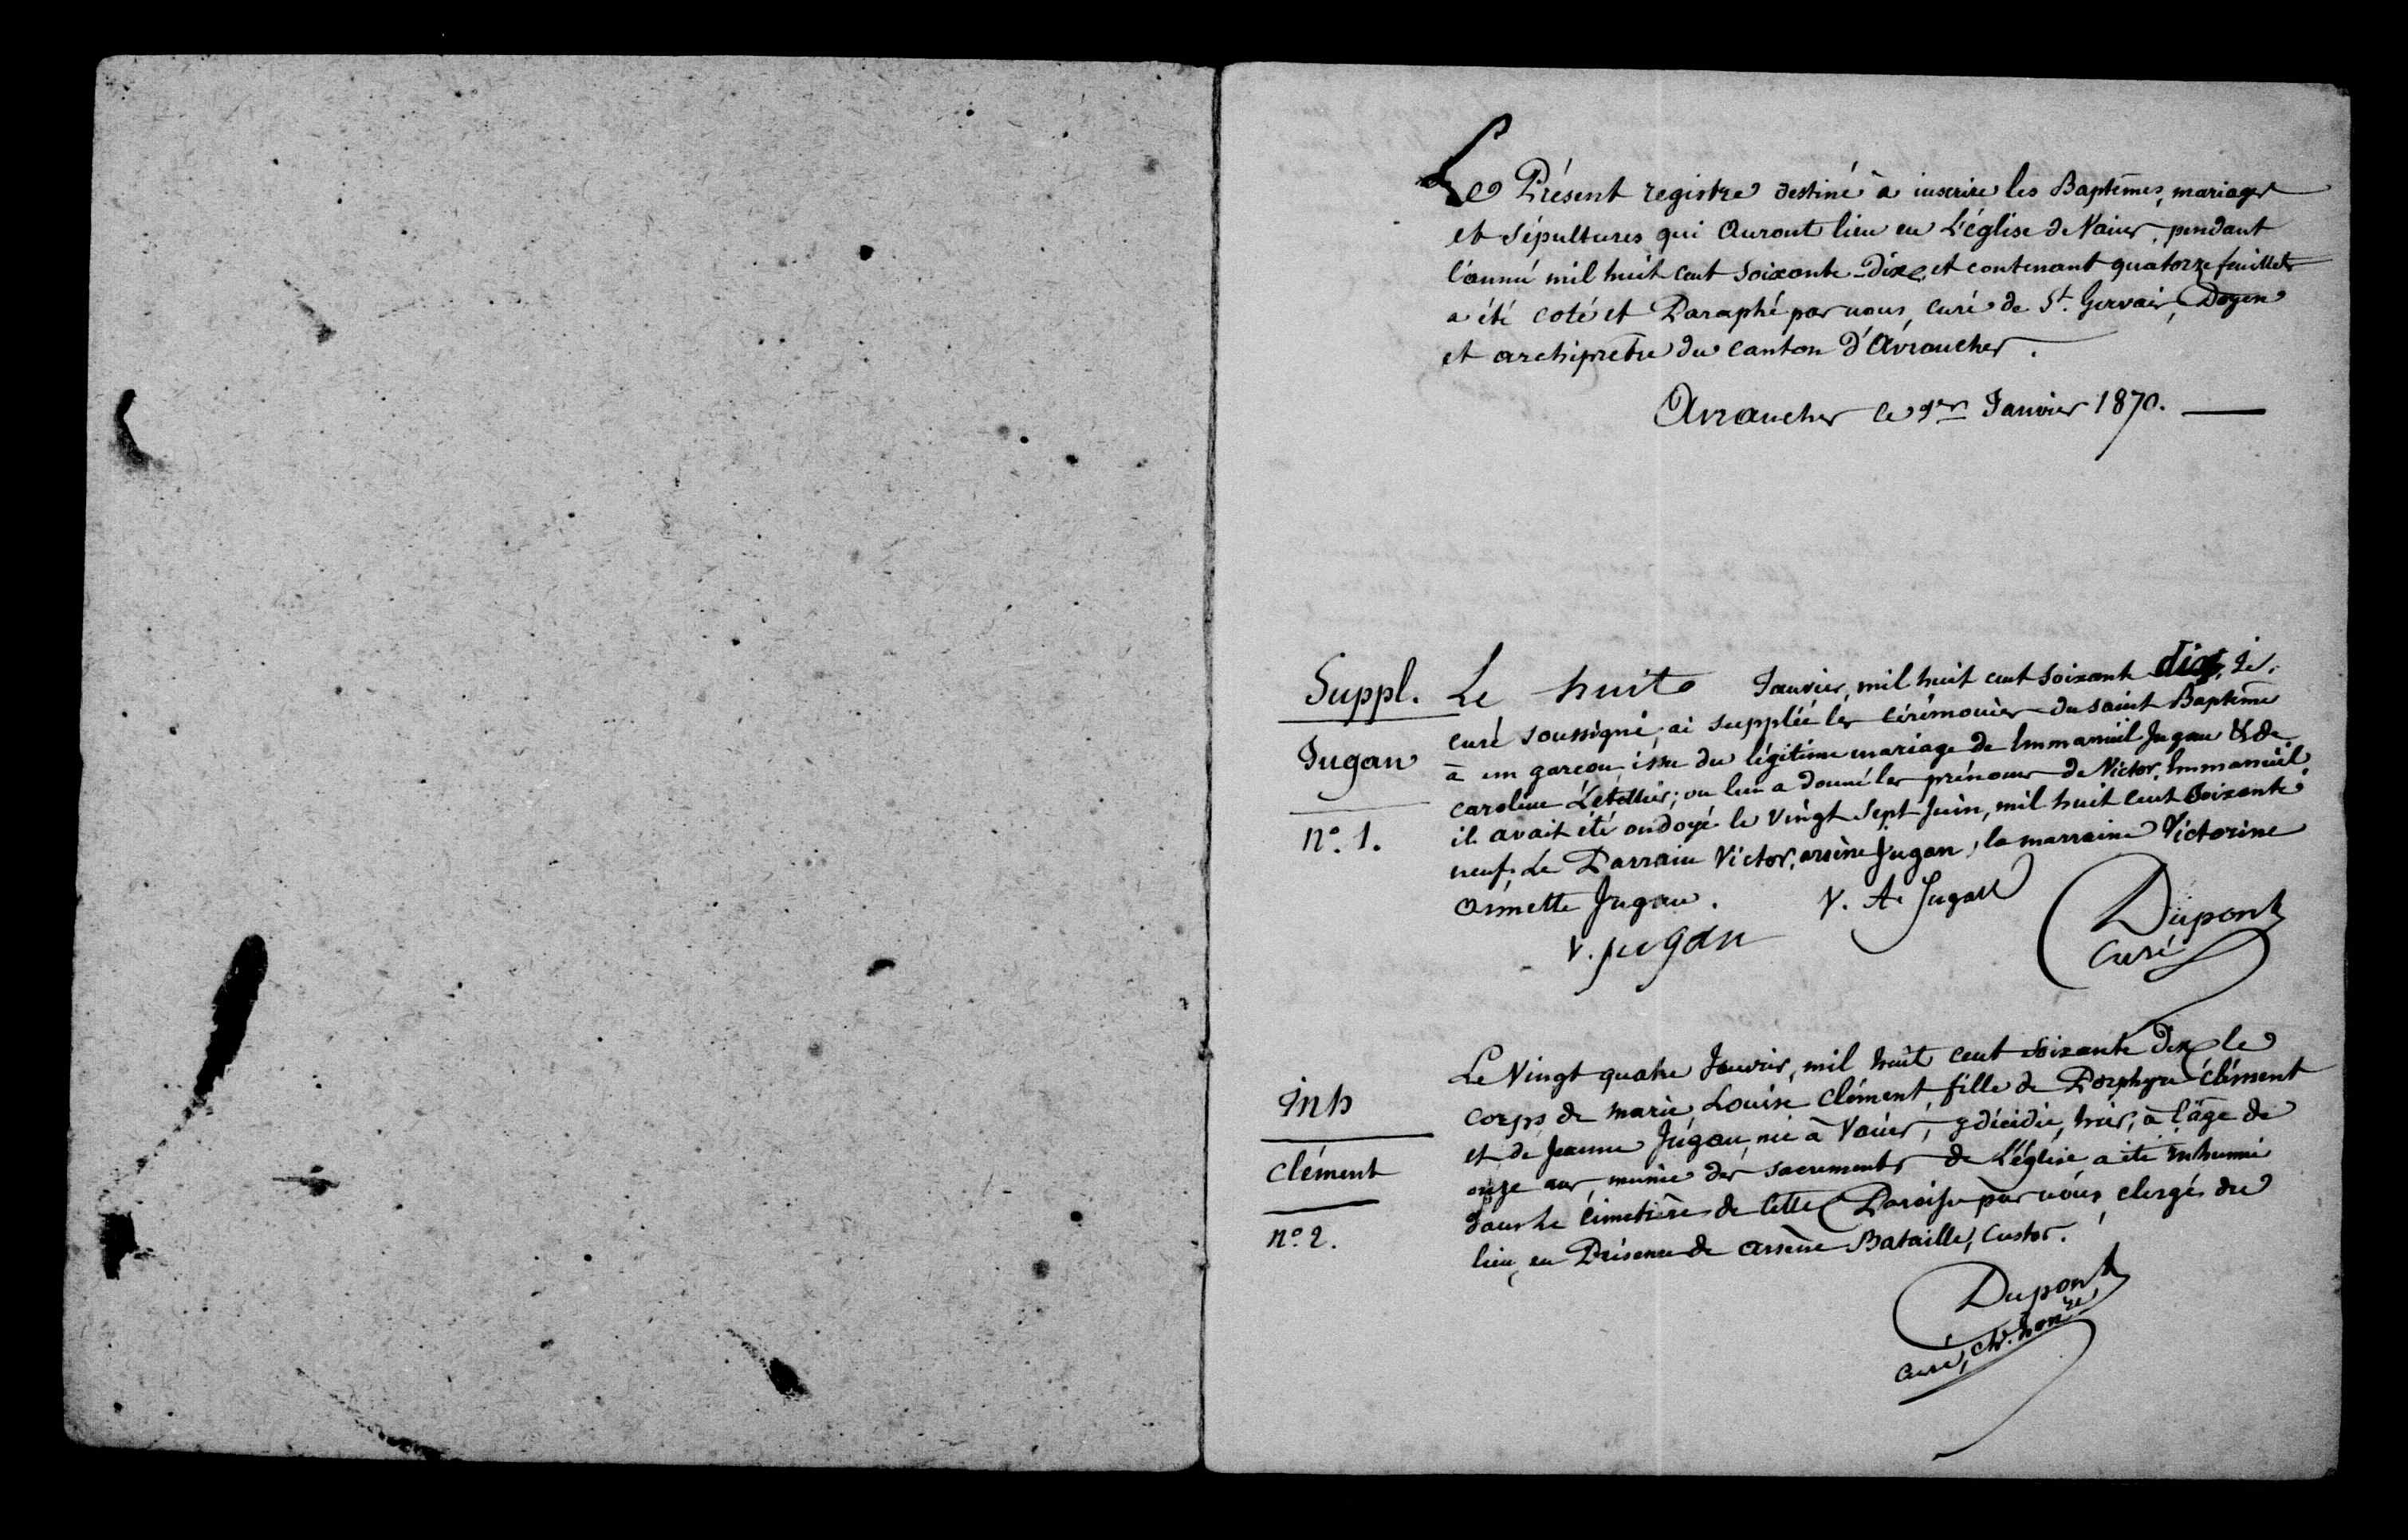 Le Présent registre destiné à inscrire les Baptêmes, mariages
et sépultures qui Auront lieu en L'église de Vains, pendant
l'année mil huit cent soixante-Dix, et contenant quatorze feuillets
a été coté et Paraphé par nous, curé de St. Gervais, Doyen
et archiprêtre du canton d'Avranches.
Avranches le 1er Janvier 1870.
Suppl.
Jugan
n°. 1.
Le huit Janvier, mil huit cent soixante dix, je,
curé soussigné, ai suppléé les cérémonies du saint Baptême
à un garçon issu du légitime mariage de Immanuël Jugan & de
caroline Letellier; on lui a donné les prénoms de Victor, Immanuël,
il avait été ondoyé le vingt sept juin, mil huit cent soixante
neuf. Le Parrain Victor, arsène Jugan, la marraine Victorine
Jugan.
V. A. Jugan
V. jugan
Dupont
Curé
Inh
Clément
n°. 2.
Le Vingt quatre Janvier, mil huit cent soixante Dix, le
corps de marie, Louise Clément, fille de Porphyre Clément
et de Jeanne Jugan, née à Vains, y décédée, hier, à l'âge de
onze ans, munie des sacrements de L'église a été inhumé
dans le cimetière de cette Paroisse par nous, clergé du
lieu, en Présence de arsène Bataille, custos.
Dupont
curé, ch. honre